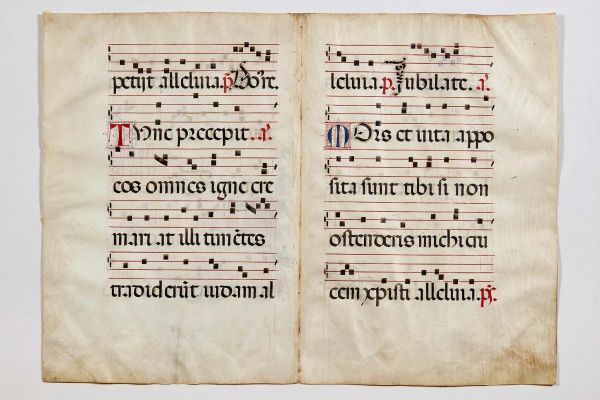 petijt alleluia. p̃.
TVnc precepit. a̾.
eos omnes igne cre
mari at illi timētes
tradiderūt iudam al
leluia. p. Jubilate. a̾.
MOrs et uita appo
sita sunt tibi si non
ostenderis michi cru
cem xpisti alleluia. p̃.